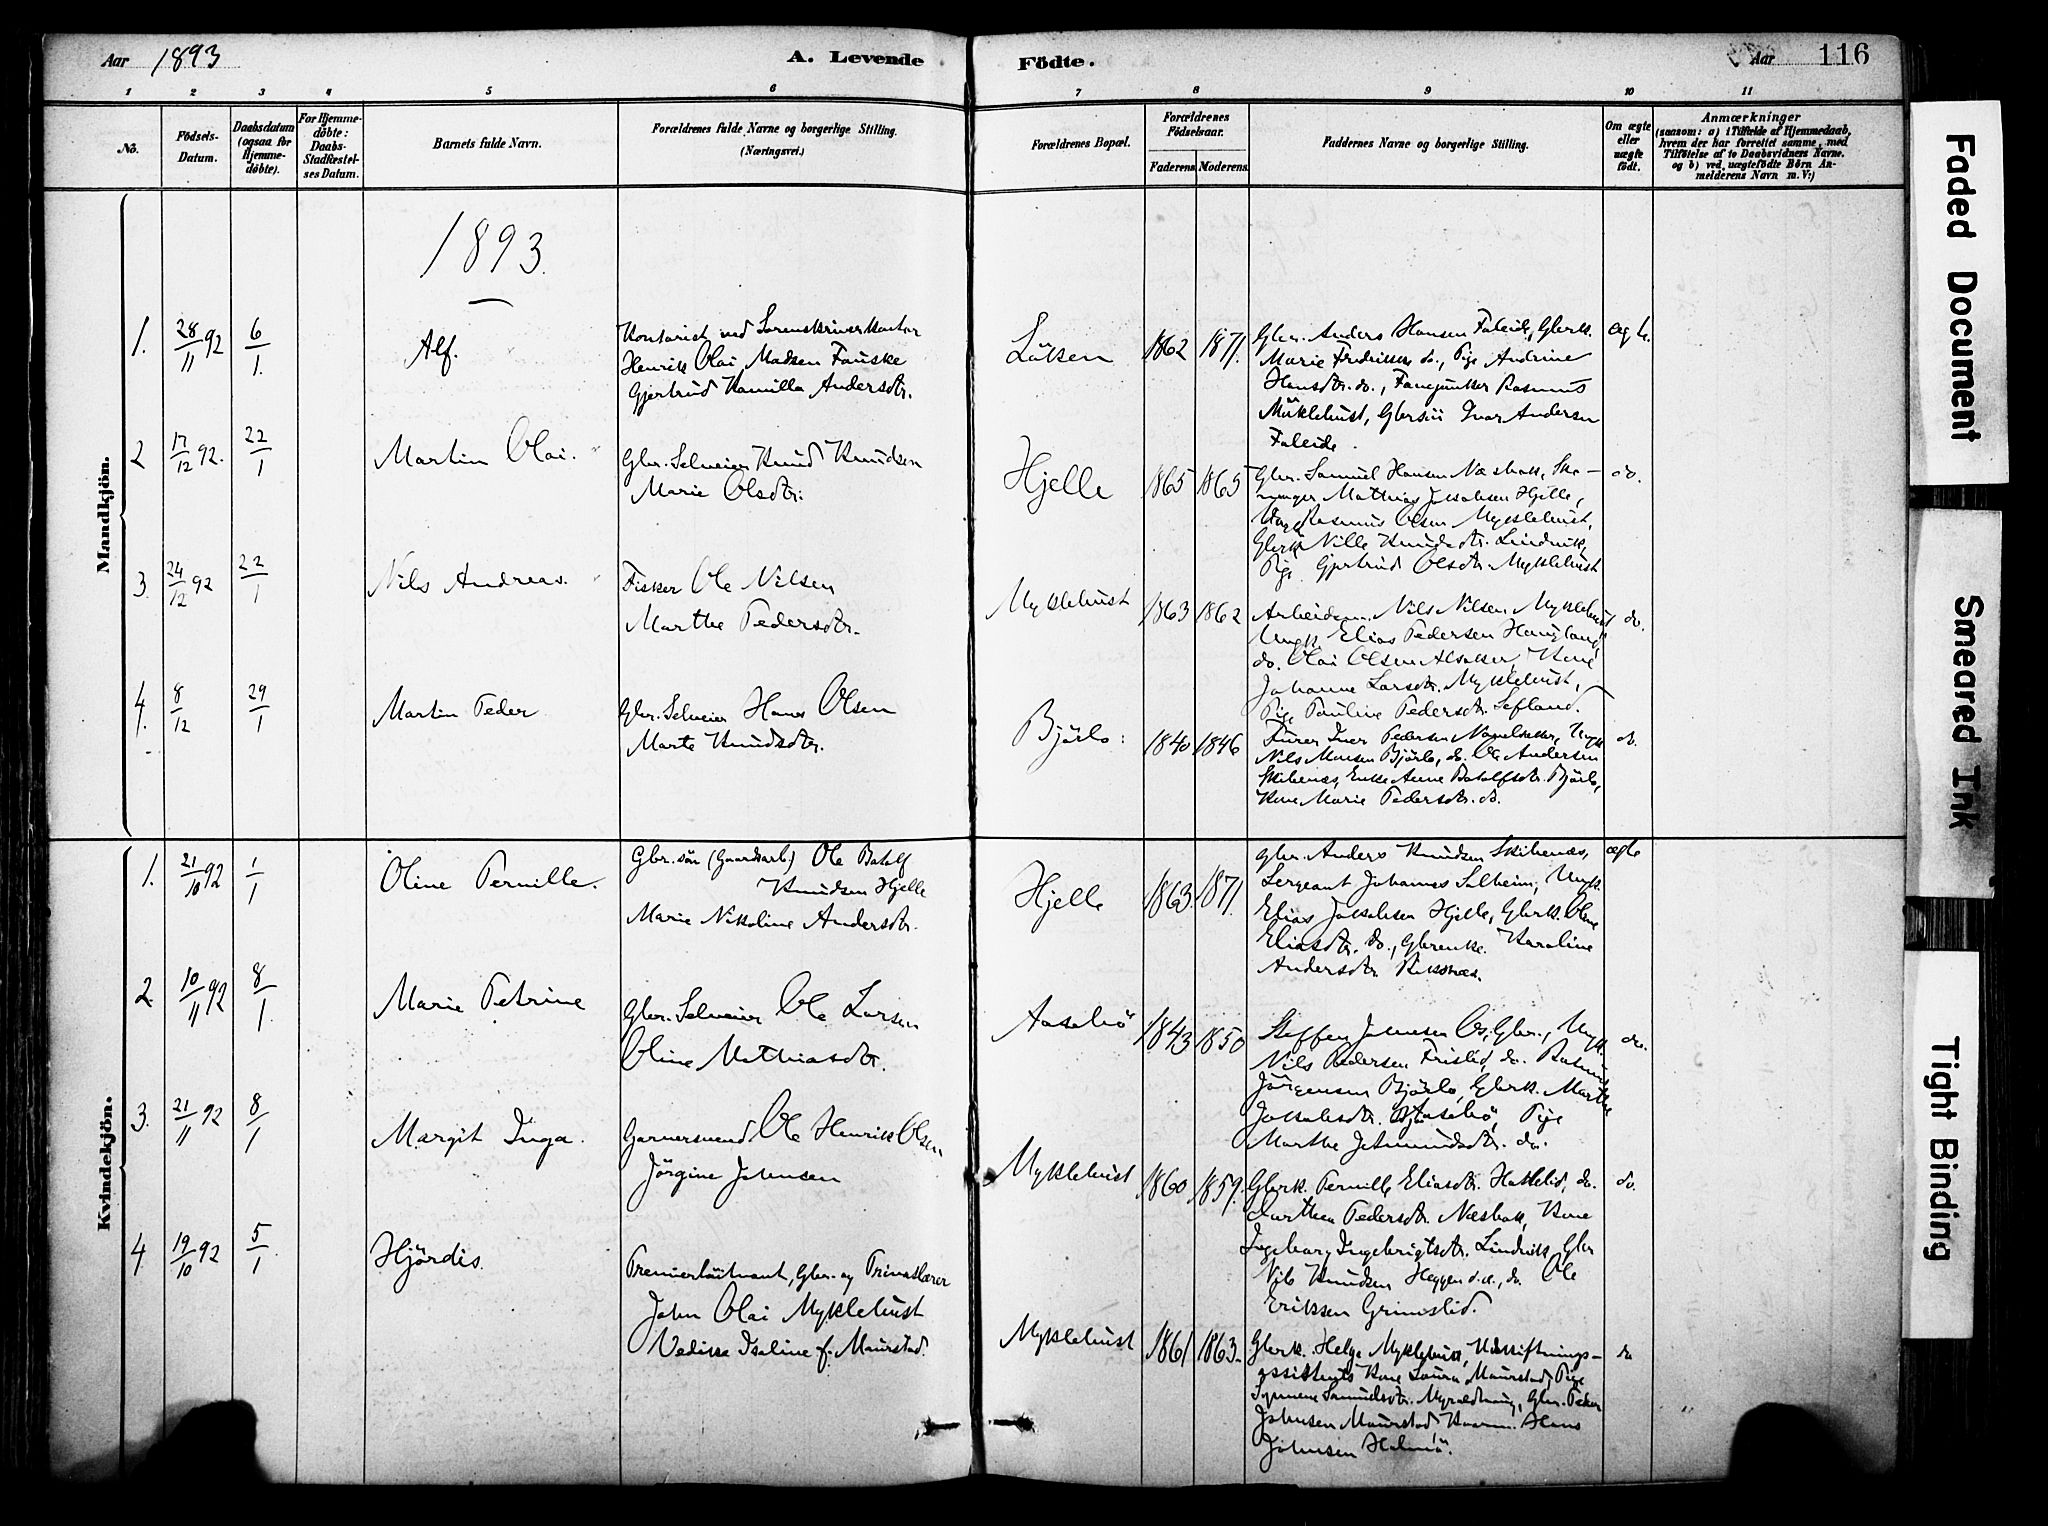 Aar 1893
A. Levende
Födte.
Aar
116
1 2 3 4 5 6 7 8 9 10 11
No.
Födsels-
Datum.
Daabsdatum
(ogsaa for
Hjemme-
döbte).
For Hjemme-
döbte:
Daabs-
Stadfæstel-
ses Datum.
Barnets fulde Navn.
Forældrenes fulde Navne og borgerlige Stilling.
(Næringsvei.)
Forældrenes Bopæl.
Forældrenes
Födselsaar.
Faderens.
Moderens.
Faddernes Navne og borgerlige Stilling.
Om ægte
eller
uægte
födt.
Anmærkninger
(saasom: a) i Tilfælde af Hjemmedaab,
hvem der har forrettet samme, med
Tilföielse af to Daabsvidners Navne.
og b) ved uægtefödte Börn An-
melderens Navn m. V:)
Mandkjön.
1893.
1. 28/11 92 6/1. Alf.
Kontorist ved Sorenskriverkontor
Henrik Olai Madsen Fauske
Gjertrud Kamilla Andersdtr.
Lötsen 1862 1871.
Gbr. Anders Hansen Faleide, Gbrk.
Marie Fredriksen do., Pige Andrine
Hansdtr. do., Fanejunker Rasmus
Myklebust, Gbrsön Ivar Andersen
Faleide.
2 17/12 92. 22/1 Martin Olai.
Gbr. Selveier Knud Knudsen
Marie Olsdtr.
Hjelle 1865 1865
Gbr. Samuel Hansen Næsbak,
Mathias Jakobsen Hjelle,
Rasmus Olsen Myklebust,
Gbrk Nille Knudsdtr. Lindvik,
Pige Gjertrud Olsdtr. Myklebust
do.
3. 24/12 92 22/1 Nils Andreas.
Fisker Ole Nilsen
Marthe Pedersdtr.
Myklebust 1863 1862
Arbeidsm. Nils Nilsen Myklebust
Ungk. Elias Pedersen Haugland,
do. Olai Olsen, Kone
Johanne Larsdtr. Myklebust,
Pige Pauline Pedersdtr. Sefland.
do.
4. 8/12 29/1 Martin Peder
Gbr. Selveier Hans Olsen
Marte Knudsdtr.
Bjørlo: 1840 1846
Iver Pedersen, Ungk
Nils Monsen Bjørlo, do. Ole Andersen
Skibenæs, Enke Anne Botolfsdtr. Bjørlo,
Kone Marie Pedersdtr. do.
do.
Kvindekjön.
1. 21/10 92 1/1 Oline Pernille.
Gbr. sön (Gaardsarb.) Ole Botolf
Knudsen Hjelle
Marie Nikoline Andersdtr.
Hjelle 1863. 1871.
Gbr. Anders Knudsen Skibenæs,
Sergeant Johannes Solheim, Ungk.
Elias Jakobsen Hjelle, Gbrk. Oline
Eliasdtr. do., Gbrenke. Karoline
Andersdtr.
ægte
2. 10/11 92 8/1. Marie Petrine
Gbr. Selveier Ole Larsen
Oline Mathiasdtr.
Aasebö 1843 1850
Steffen Johnsen Os, Gbr., Ungk.
Nils Pedersen Frislid, do. Rasmus
Jörgensen Bjørlo, Gbrk. Marthe
Jakobsdtr. Aasebö, Pige
Marthe Jetmundsdtr. do.
do.
3. 21/11 92 8/1 Margit Inga.
Garversvend Ole Henrik Olsen
Jörgine Johnsen
Myklebust 1860 1859.
Gbrk. Pernille Eliasdtr. Hatlelid, do.
Dorthea Pedersdtr. Næsbak, Kone
Ingeborg Ingebrigtsdtr. Lindvik, Gbr
Nils Knudsen Heggen, do. Ole
Eriksen Grimslid.
do.
4 19/10 92 5/1 Hjördis.
Premierlöitnant, Gbr. og Privatlærer
John Olai Myklebust
Vedikke Isaline f. Maurstad.
Myklebust 1861 1863.
Gbrk. Helga Myklebust, Udskiftnings-
assistents Kone Laura Maurstad, Pige
Synneve Samuelsdtr., Gbr. Peder
Johnsen Maurstad, Hans
Johnsen Holmö.
do
Faded Document
Smeared Ink
Tight Binding